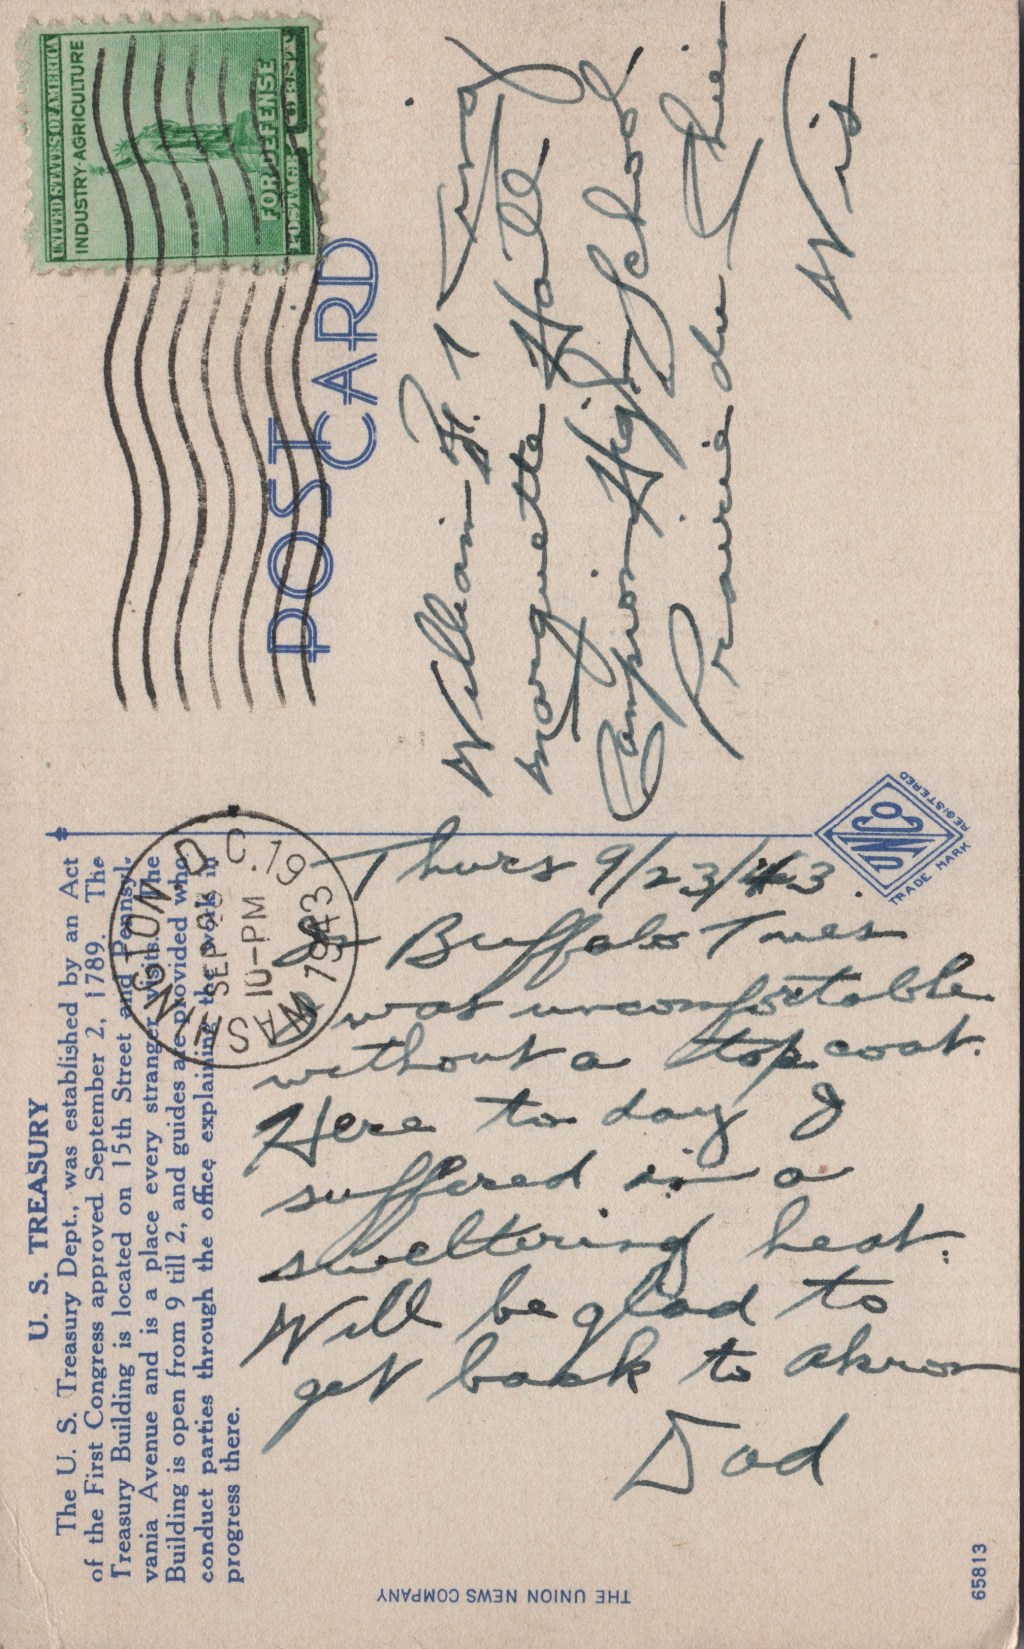 U. S. TREASURY
The U. S. Treasury Dept., was established by an Act
of the First Congress approved September 2, 1789. The
Treasury Building is located on 15th Street and Pennsyl-
vania Avenue and is a place every stranger visits. The
Building is open from 9 till 2, and guides are provided who
conduct parties through the office, explaining the work in
progress there.
Thurs 9/23/43.
In Buffalo Tues
I was uncomfortable
without a top coat.
Here to day I
suffered in a
sweltering heat.
Will be glad to
get back to Akron
Dad
THE UNION NEWS COMPANY
65813
UNCO
TRADE MARK
REGISTERED
WASHINGTON
D. C. 19
SEP
10-PM
1943
UNITED STATES OF AMERICA
INDUSTRY-AGRICULTURE
FOR DEFENSE
POSTAGE
POST CARD
William F.
Marquette Hall
Campion High School
Prairie du Chien
Wis.